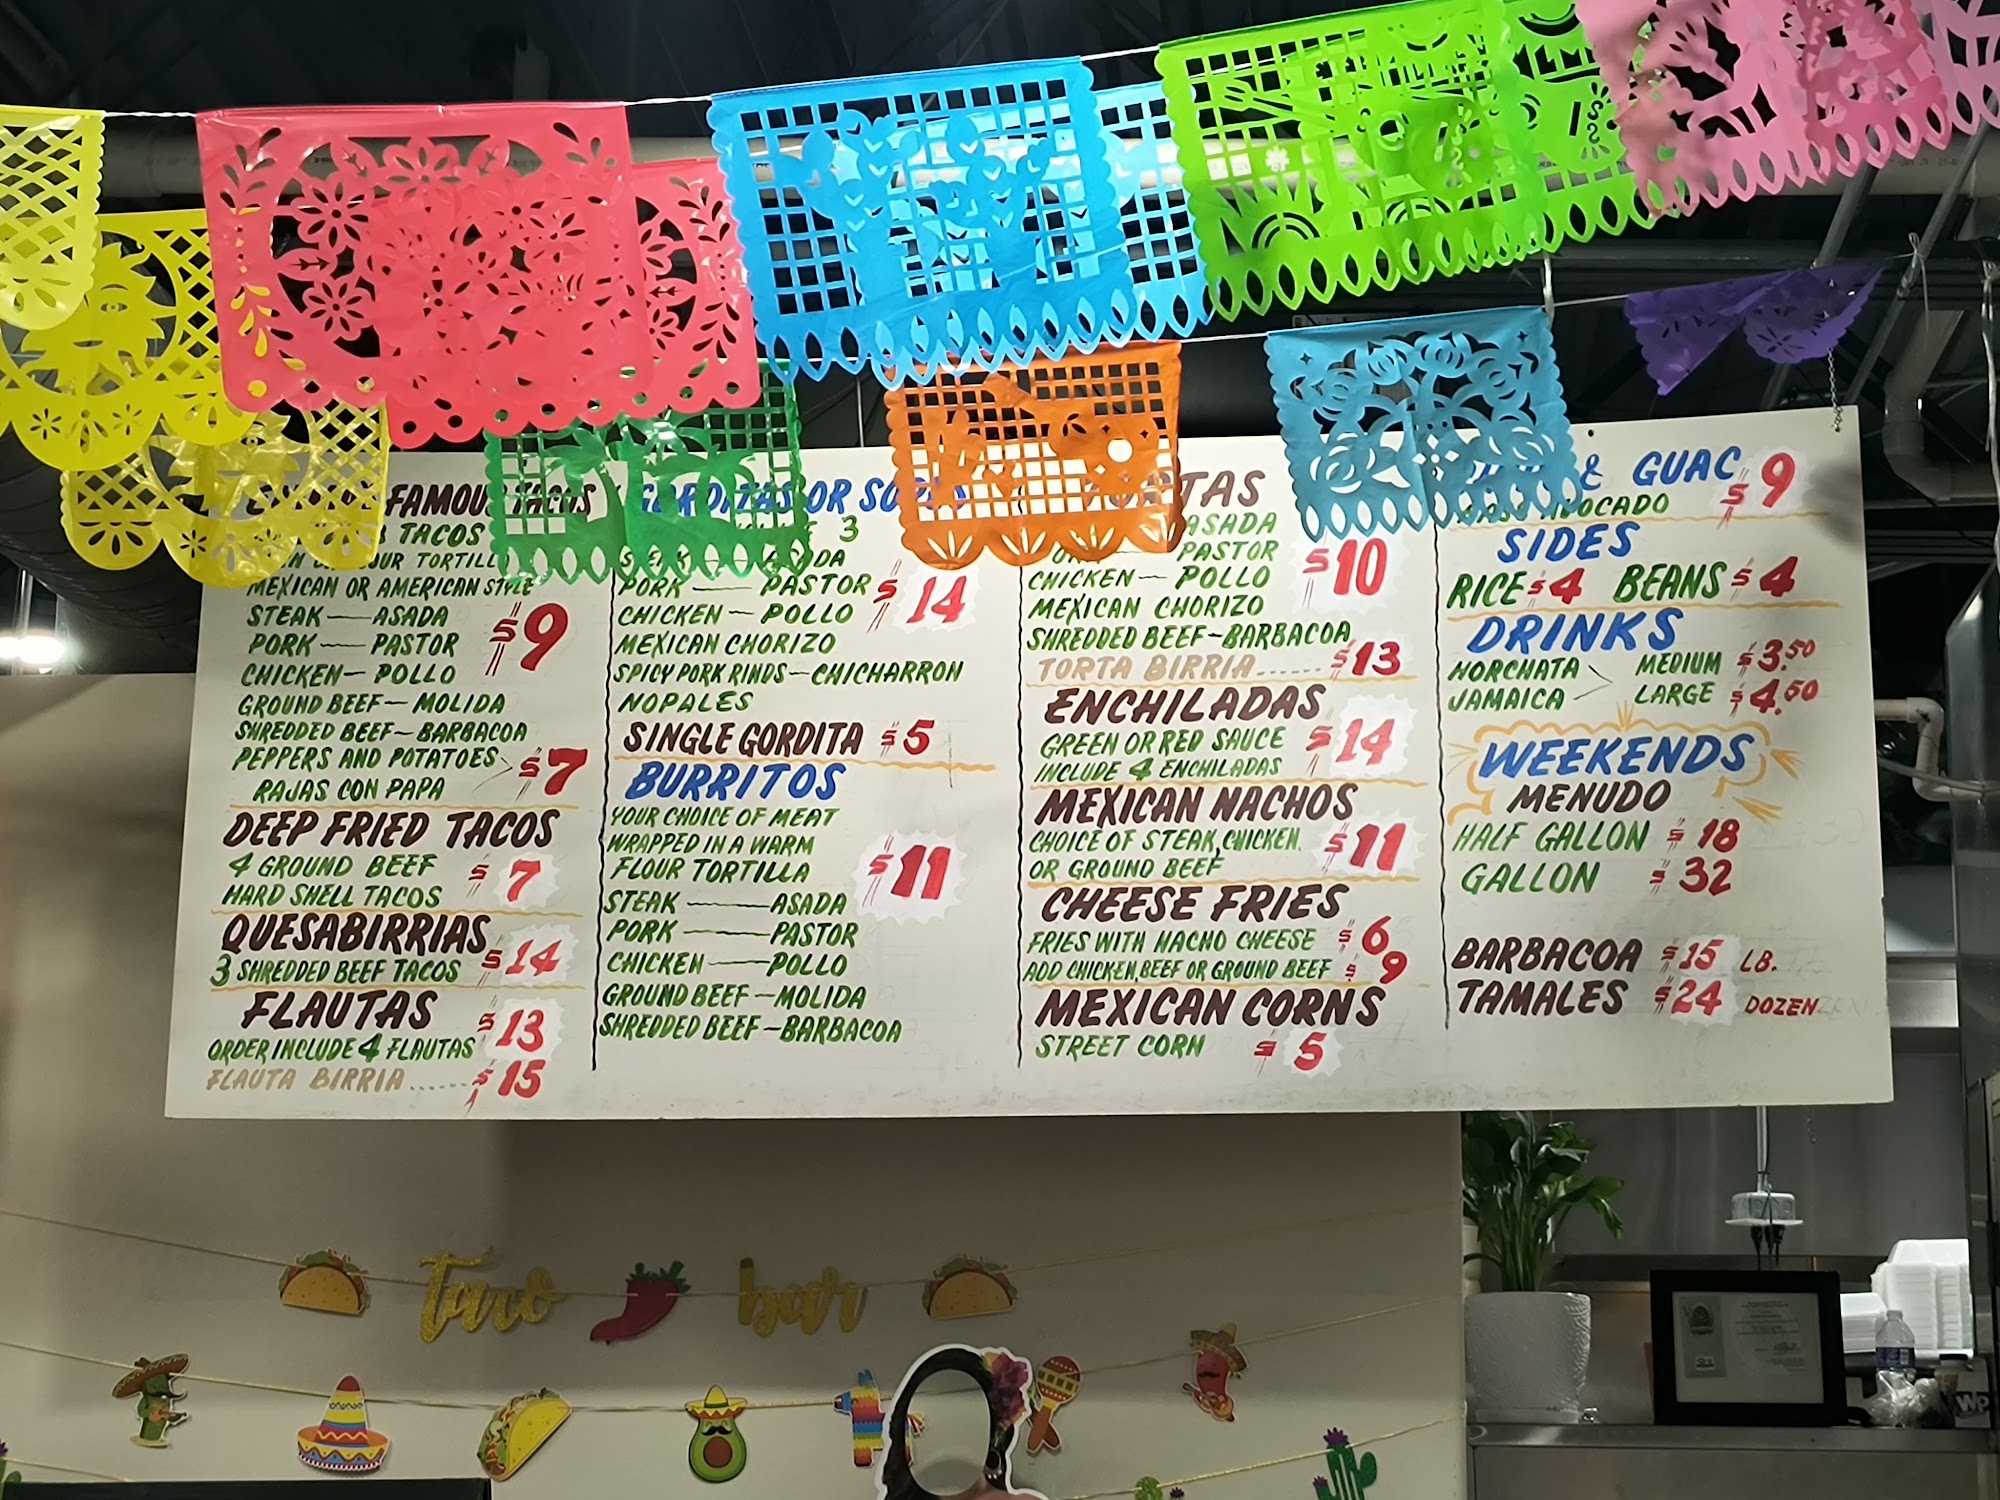 FAMOUS TACOS
TACOS
TORTILL
MEXICAN OR AMERICAN STYLE
STEAK — ASADA
PORK — PASTOR
$9
CHICKEN — POLLO
GROUND BEEF — MOLIDA
SHREDDED BEEF — BARBACOA
PEPPERS AND POTATOES
$7
RAJAS CON PAPA
DEEP FRIED TACOS
4 GROUND BEEF
HARD SHELL TACOS
$7
QUESABIRRIAS
3 SHREDDED BEEF TACOS
$14
FLAUTAS
$13
ORDER INCLUDE 4 FLAUTAS
FLAUTA BIRRIA...... $15
GORDITAS OR SO
3
STEAK ASADA
PORK — PASTOR
$14
CHICKEN — POLLO
MEXICAN CHORIZO
SPICY PORK RINDS — CHICHARRON
NOPALES
SINGLE GORDITA $5
BURRITOS
YOUR CHOICE OF MEAT
WRAPPED IN A WARM
FLOUR TORTILLA
$11
STEAK — ASADA
PORK — PASTOR
CHICKEN — POLLO
GROUND BEEF — MOLIDA
SHREDDED BEEF — BARBACOA
TAS
ASADA
PASTOR
$10
CHICKEN — POLLO
MEXICAN CHORIZO
SHREDDED BEEF — BARBACOA
TORTA BIRRIA...... $13
ENCHILADAS
GREEN OR RED SAUCE
$14
INCLUDE 4 ENCHILADAS
MEXICAN NACHOS
CHOICE OF STEAK, CHICKEN,
OR GROUND BEEF
$11
CHEESE FRIES
FRIES WITH NACHO CHEESE $6
ADD CHICKEN, BEEF OR GROUND BEEF $9
MEXICAN CORNS
STREET CORN $5
& GUAC $9
AVOCADO
SIDES
RICE $4 BEANS $4
DRINKS
HORCHATA MEDIUM $3.50
JAMAICA LARGE $4.50
WEEKENDS
MENUDO
HALF GALLON $18
GALLON $32
BARBACOA $15 LB.
TAMALES $24 DOZEN
Taco bar